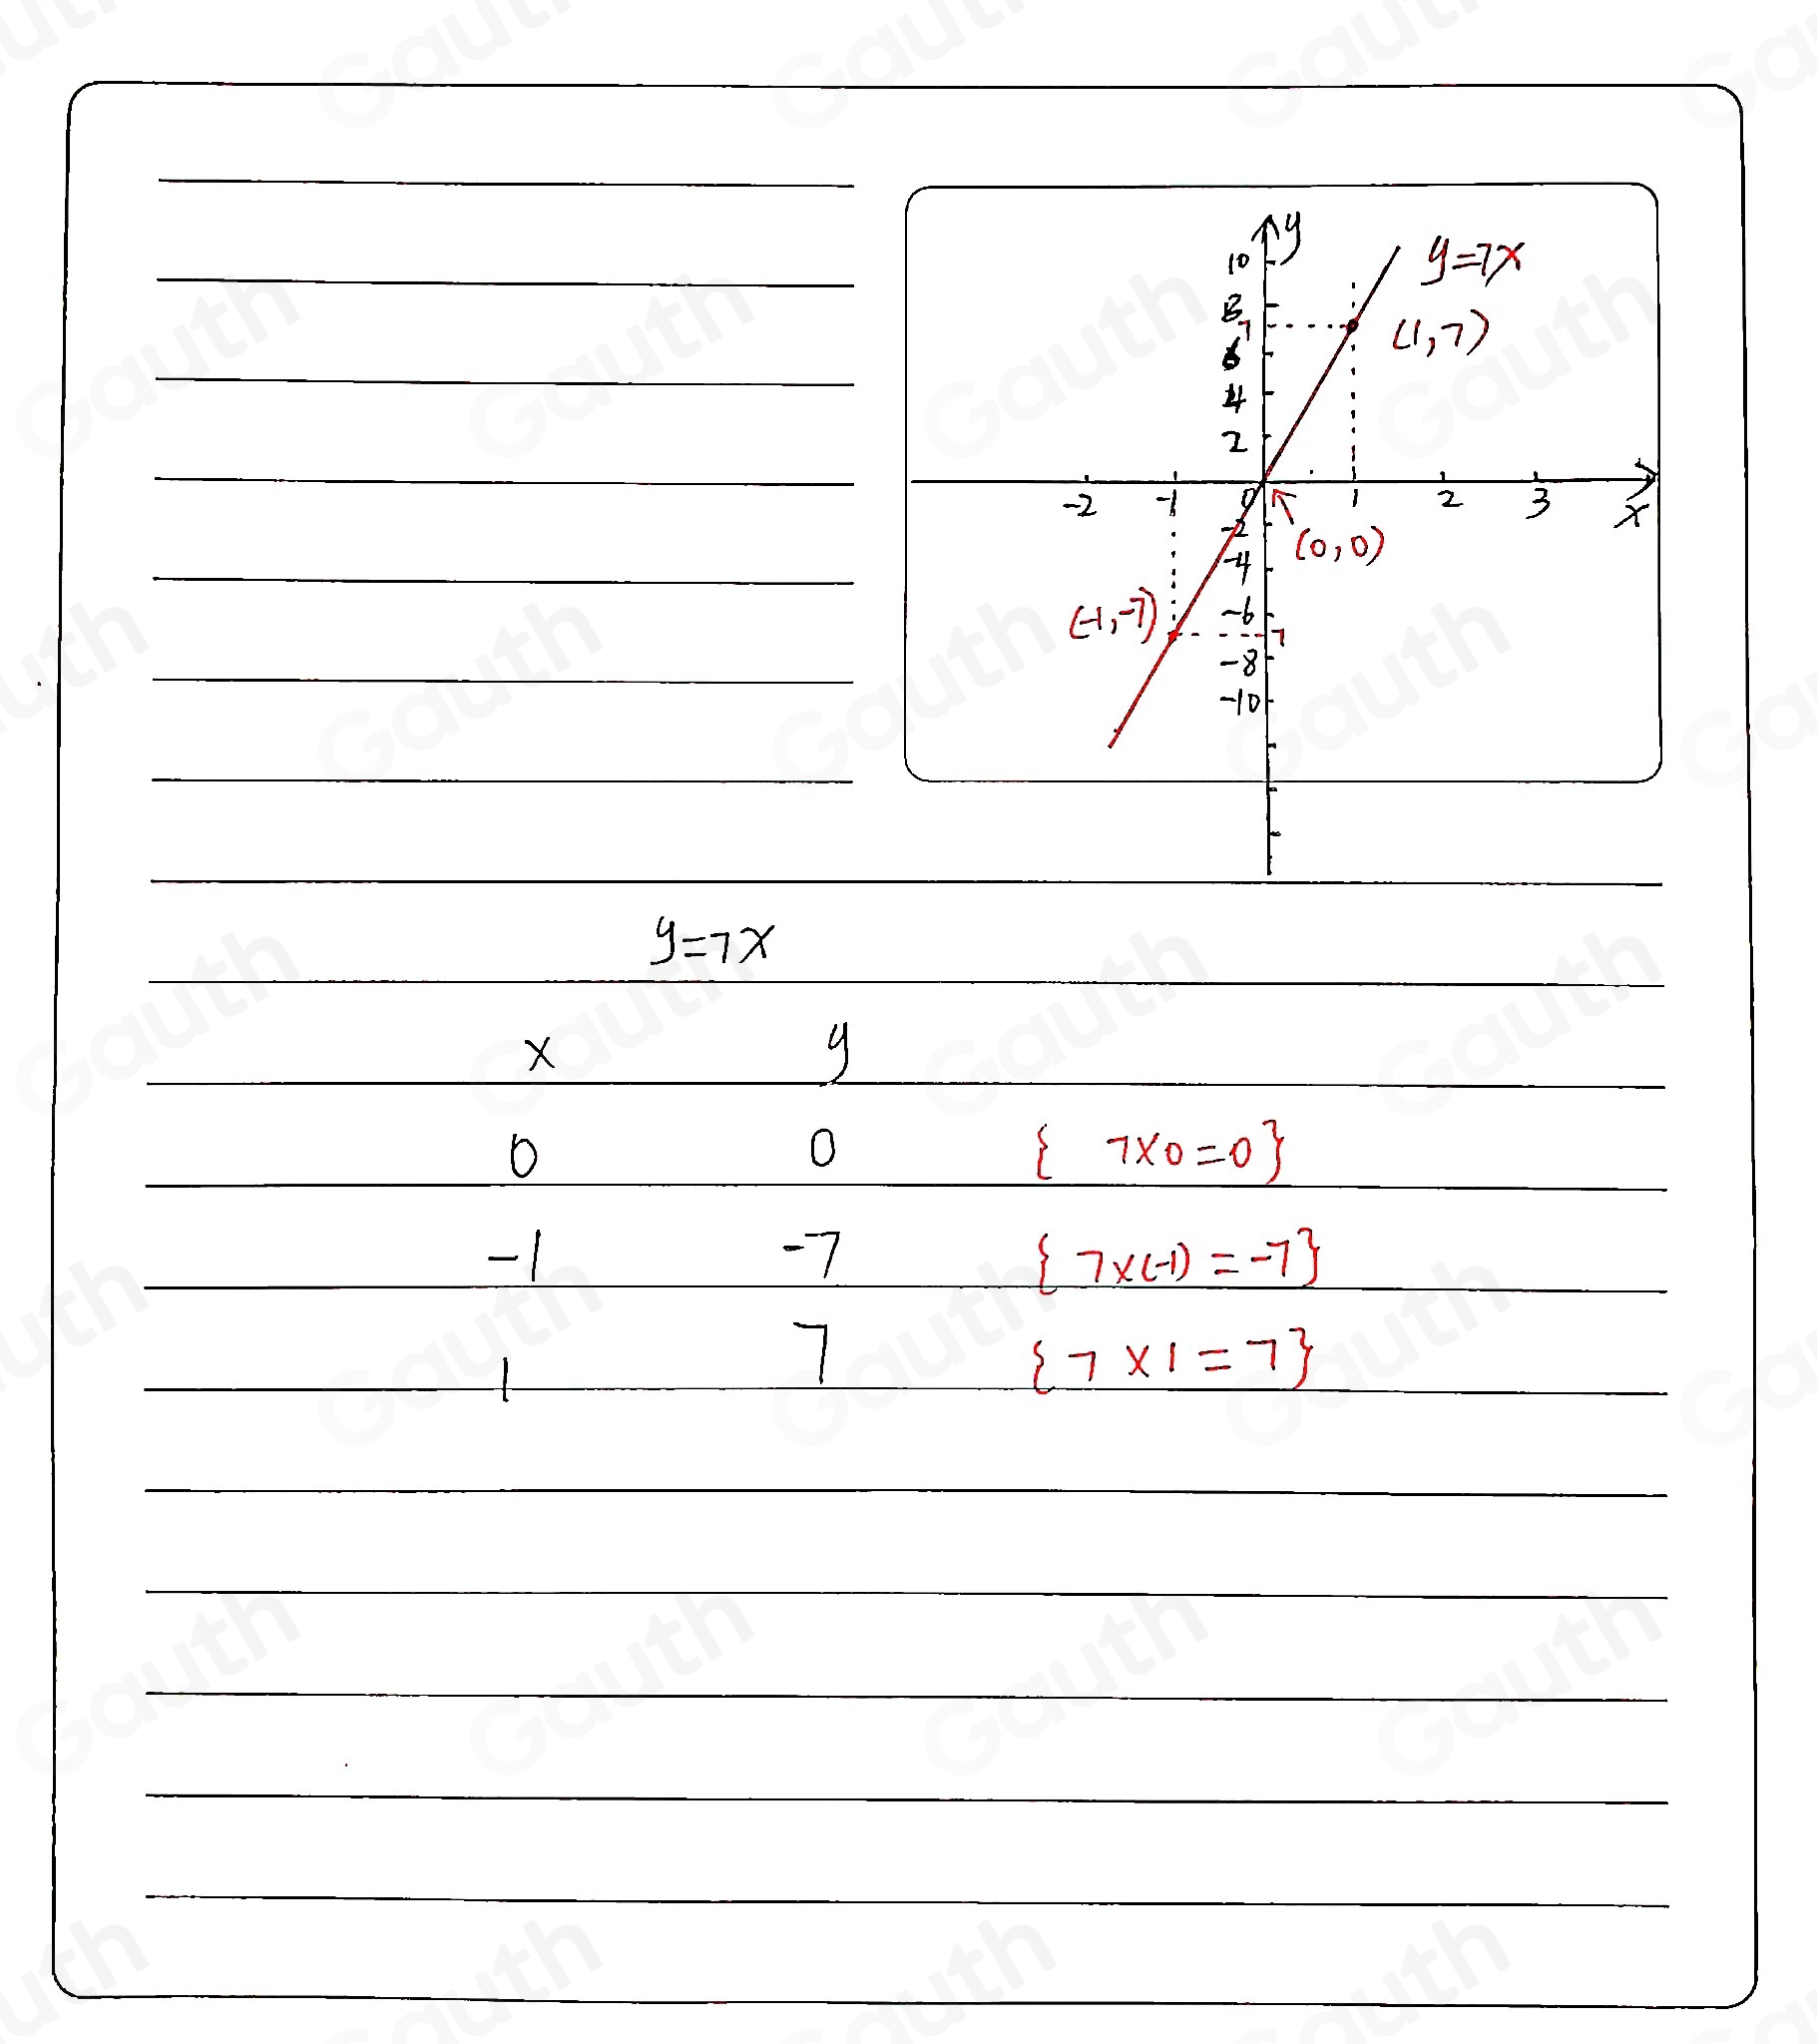 y
10
y=7x
8
7
(1,7)
6
4
2
-2 -1 0 1 2 3 x
-2
(0,0)
-4
(-1,-7)
-6
-7
-8
-10
y=7x
x y
0 0 { 7×0=0}
-1 -7 { 7×(-1)=-7}
1 7 {7×1=7}
Gauth